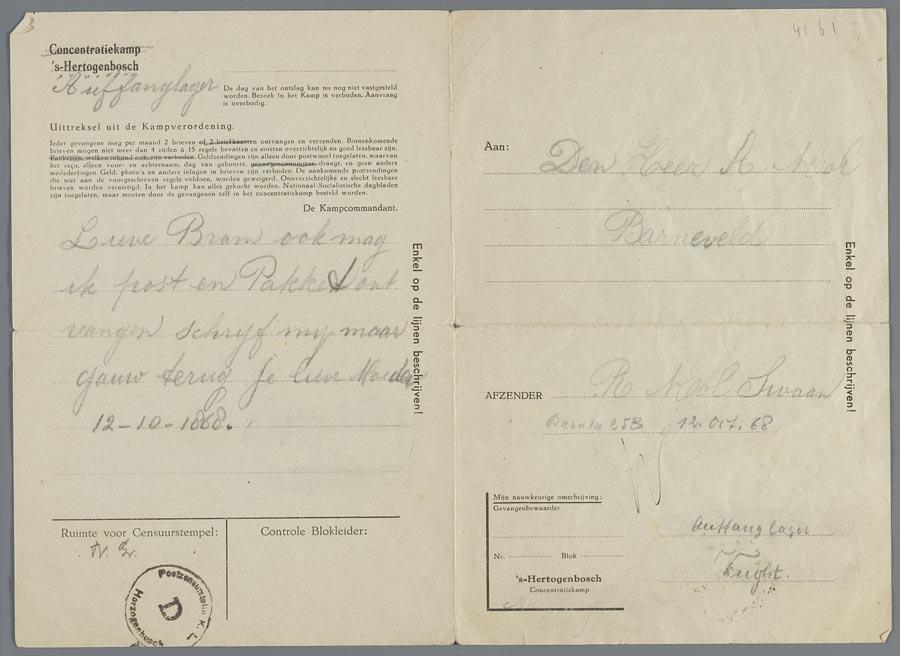 Concentratiekamp
's-Hertogenbosch
Auffanglager
De dag van het ontslag kan nu nog niet vastgesteld
worden. Bezoek in het Kamp is verboden. Aanvraag
is overbodig.
Uittreksel uit de Kampverordening.
Ieder gevangene mag per maand 2 brieven of 2 briefkaarten ontvangen en verzenden. Binnenkomende
brieven mogen niet meer dan 4 zijden à 15 regels bevatten en moeten overzichtelijk en goed leesbaar zijn.
Pakketten, welken inhoud ook, zijn verboden. Geldzendingen zijn alleen door postwissel toegelaten, waarvan
het reçu, alleen voor- en achternaam, dag van geboorte, gevangenennummer draagt, en geen andere
mededeelingen. Geld, photo's en andere inlagen in brieven zijn verboden. De aankomende postzendingen
die niet aan de voorgeschreven regels voldoen, worden geweigerd. Onoverzichtelijke en slecht leesbare
brieven worden vernietigd. In het kamp kan alles gekocht worden. Nationaal-Socialistische dagbladen
zijn toegelaten, maar moeten door de gevangenen zelf in het concentratiekamp besteld worden.
De Kampcommandant.
Lieve Bram ook mag
ik post en Pakket ont
vangen schrijf mij maar
gauw terug je lieve Moeder
12-10-1868.
Enkel op de lijnen beschrijven!
Ruimte voor Censuurstempel:
Controle Blokleider:
Postzensurstelle K. L.
D
Herzogenbusch
41 61
Aan:
Den Heer A Mol
Barneveld
Enkel op de lijnen beschrijven!
AFZENDER
R Mol Swaan
Barake 25B 12. Oct. 68
Mijn nauwkeurige omschrijving:
Gevangenbewaarder
Nr. Blok
's-Hertogenbosch
Concentratiekamp
Auffanglager
Vught.